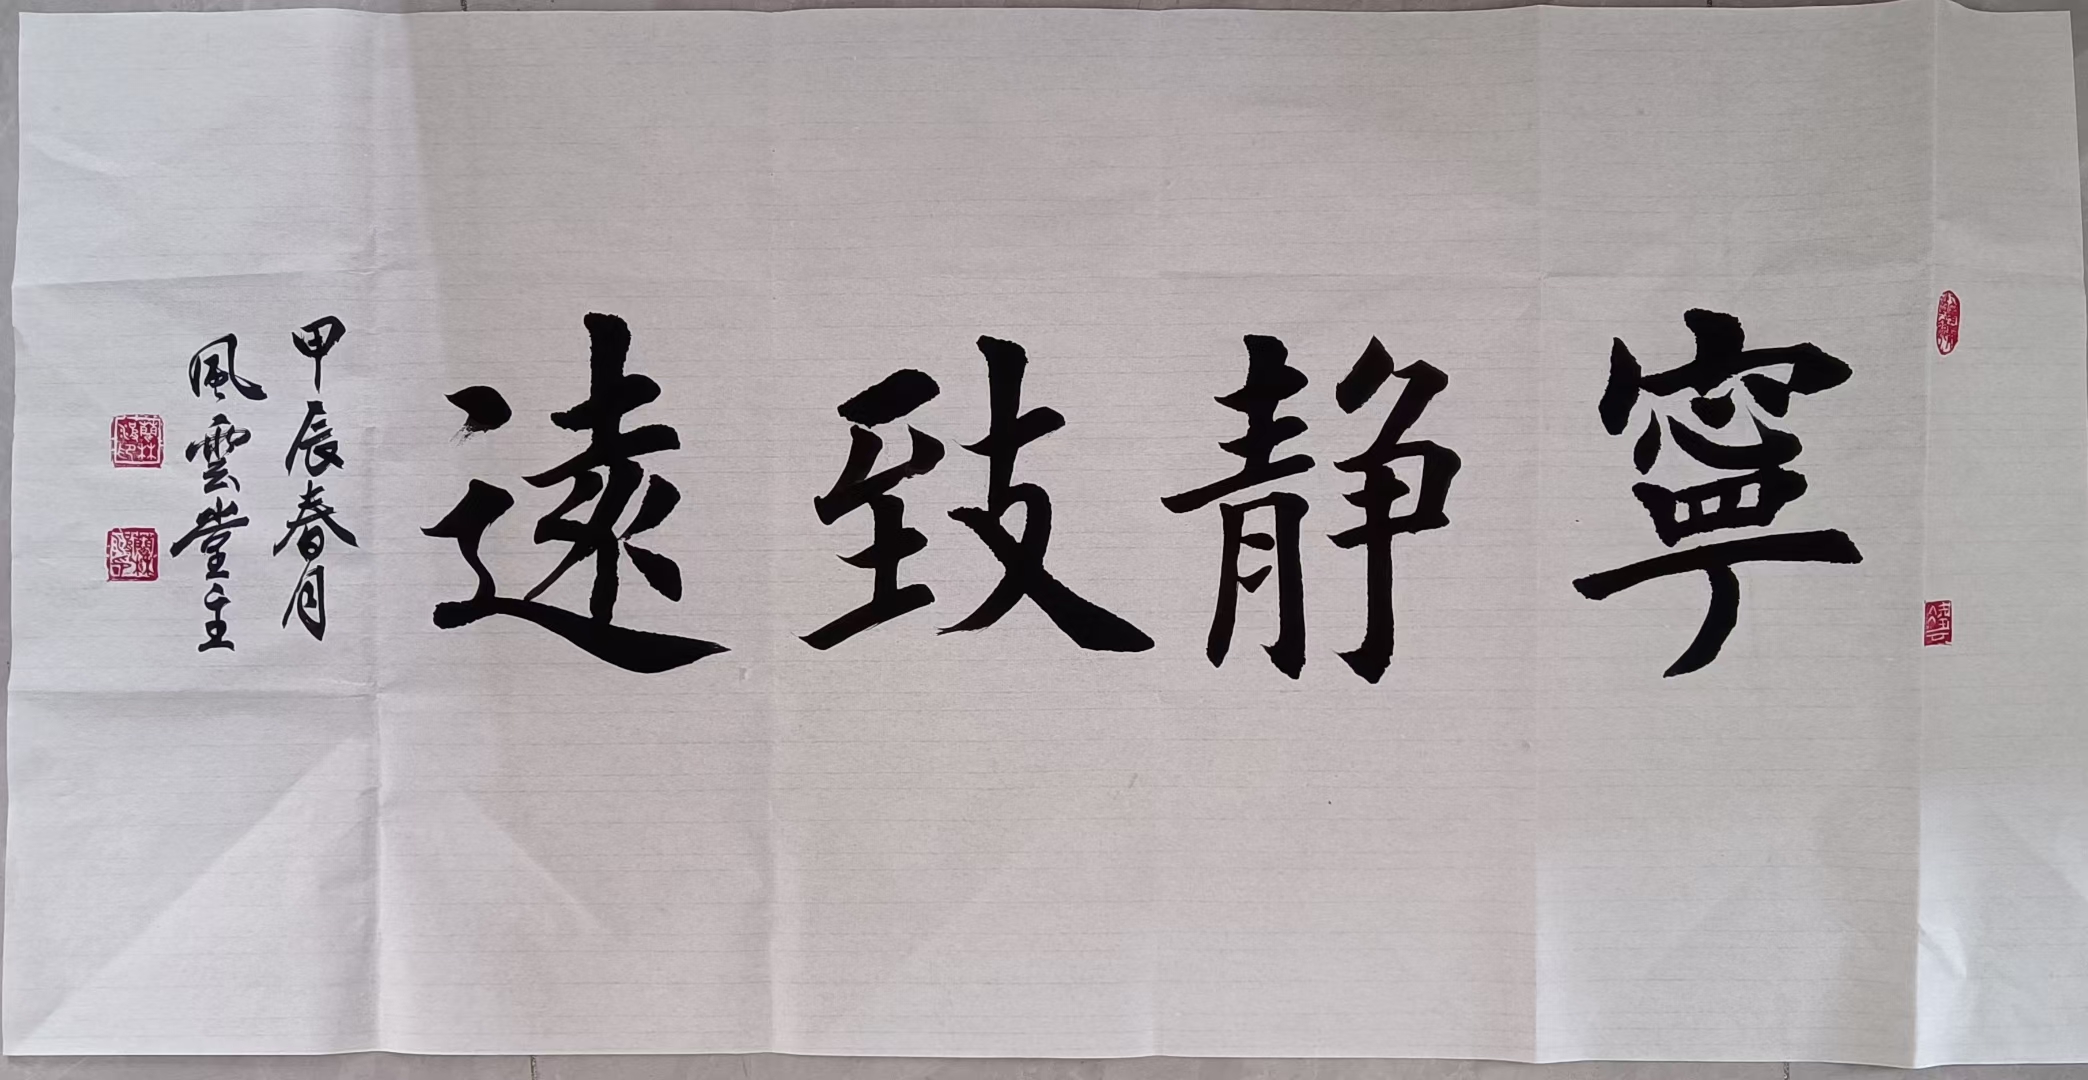 寧静致遠
甲辰春月
風雲堂主